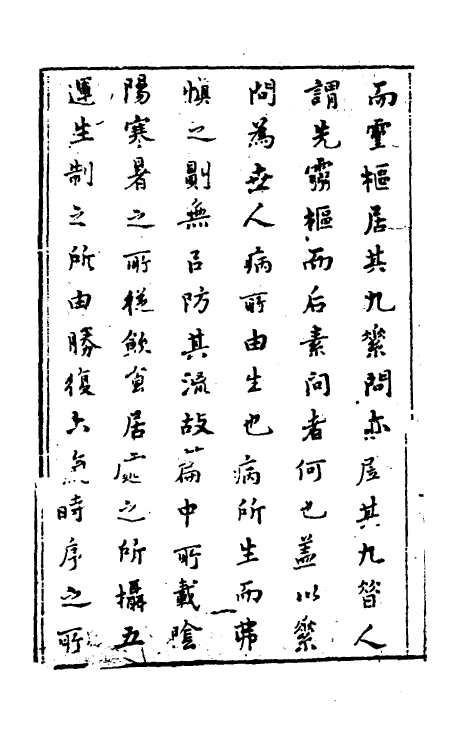 而靈樞居其九素問亦居其九昝人
謂先靈樞而后素問者何也盖以素
問為世人病所由生也病所生而弗
慎之則無㠯防其流故篇中所載陰
陽寒暑之所從飲食居處之所攝五
運生制之所由勝復六氣時序之所